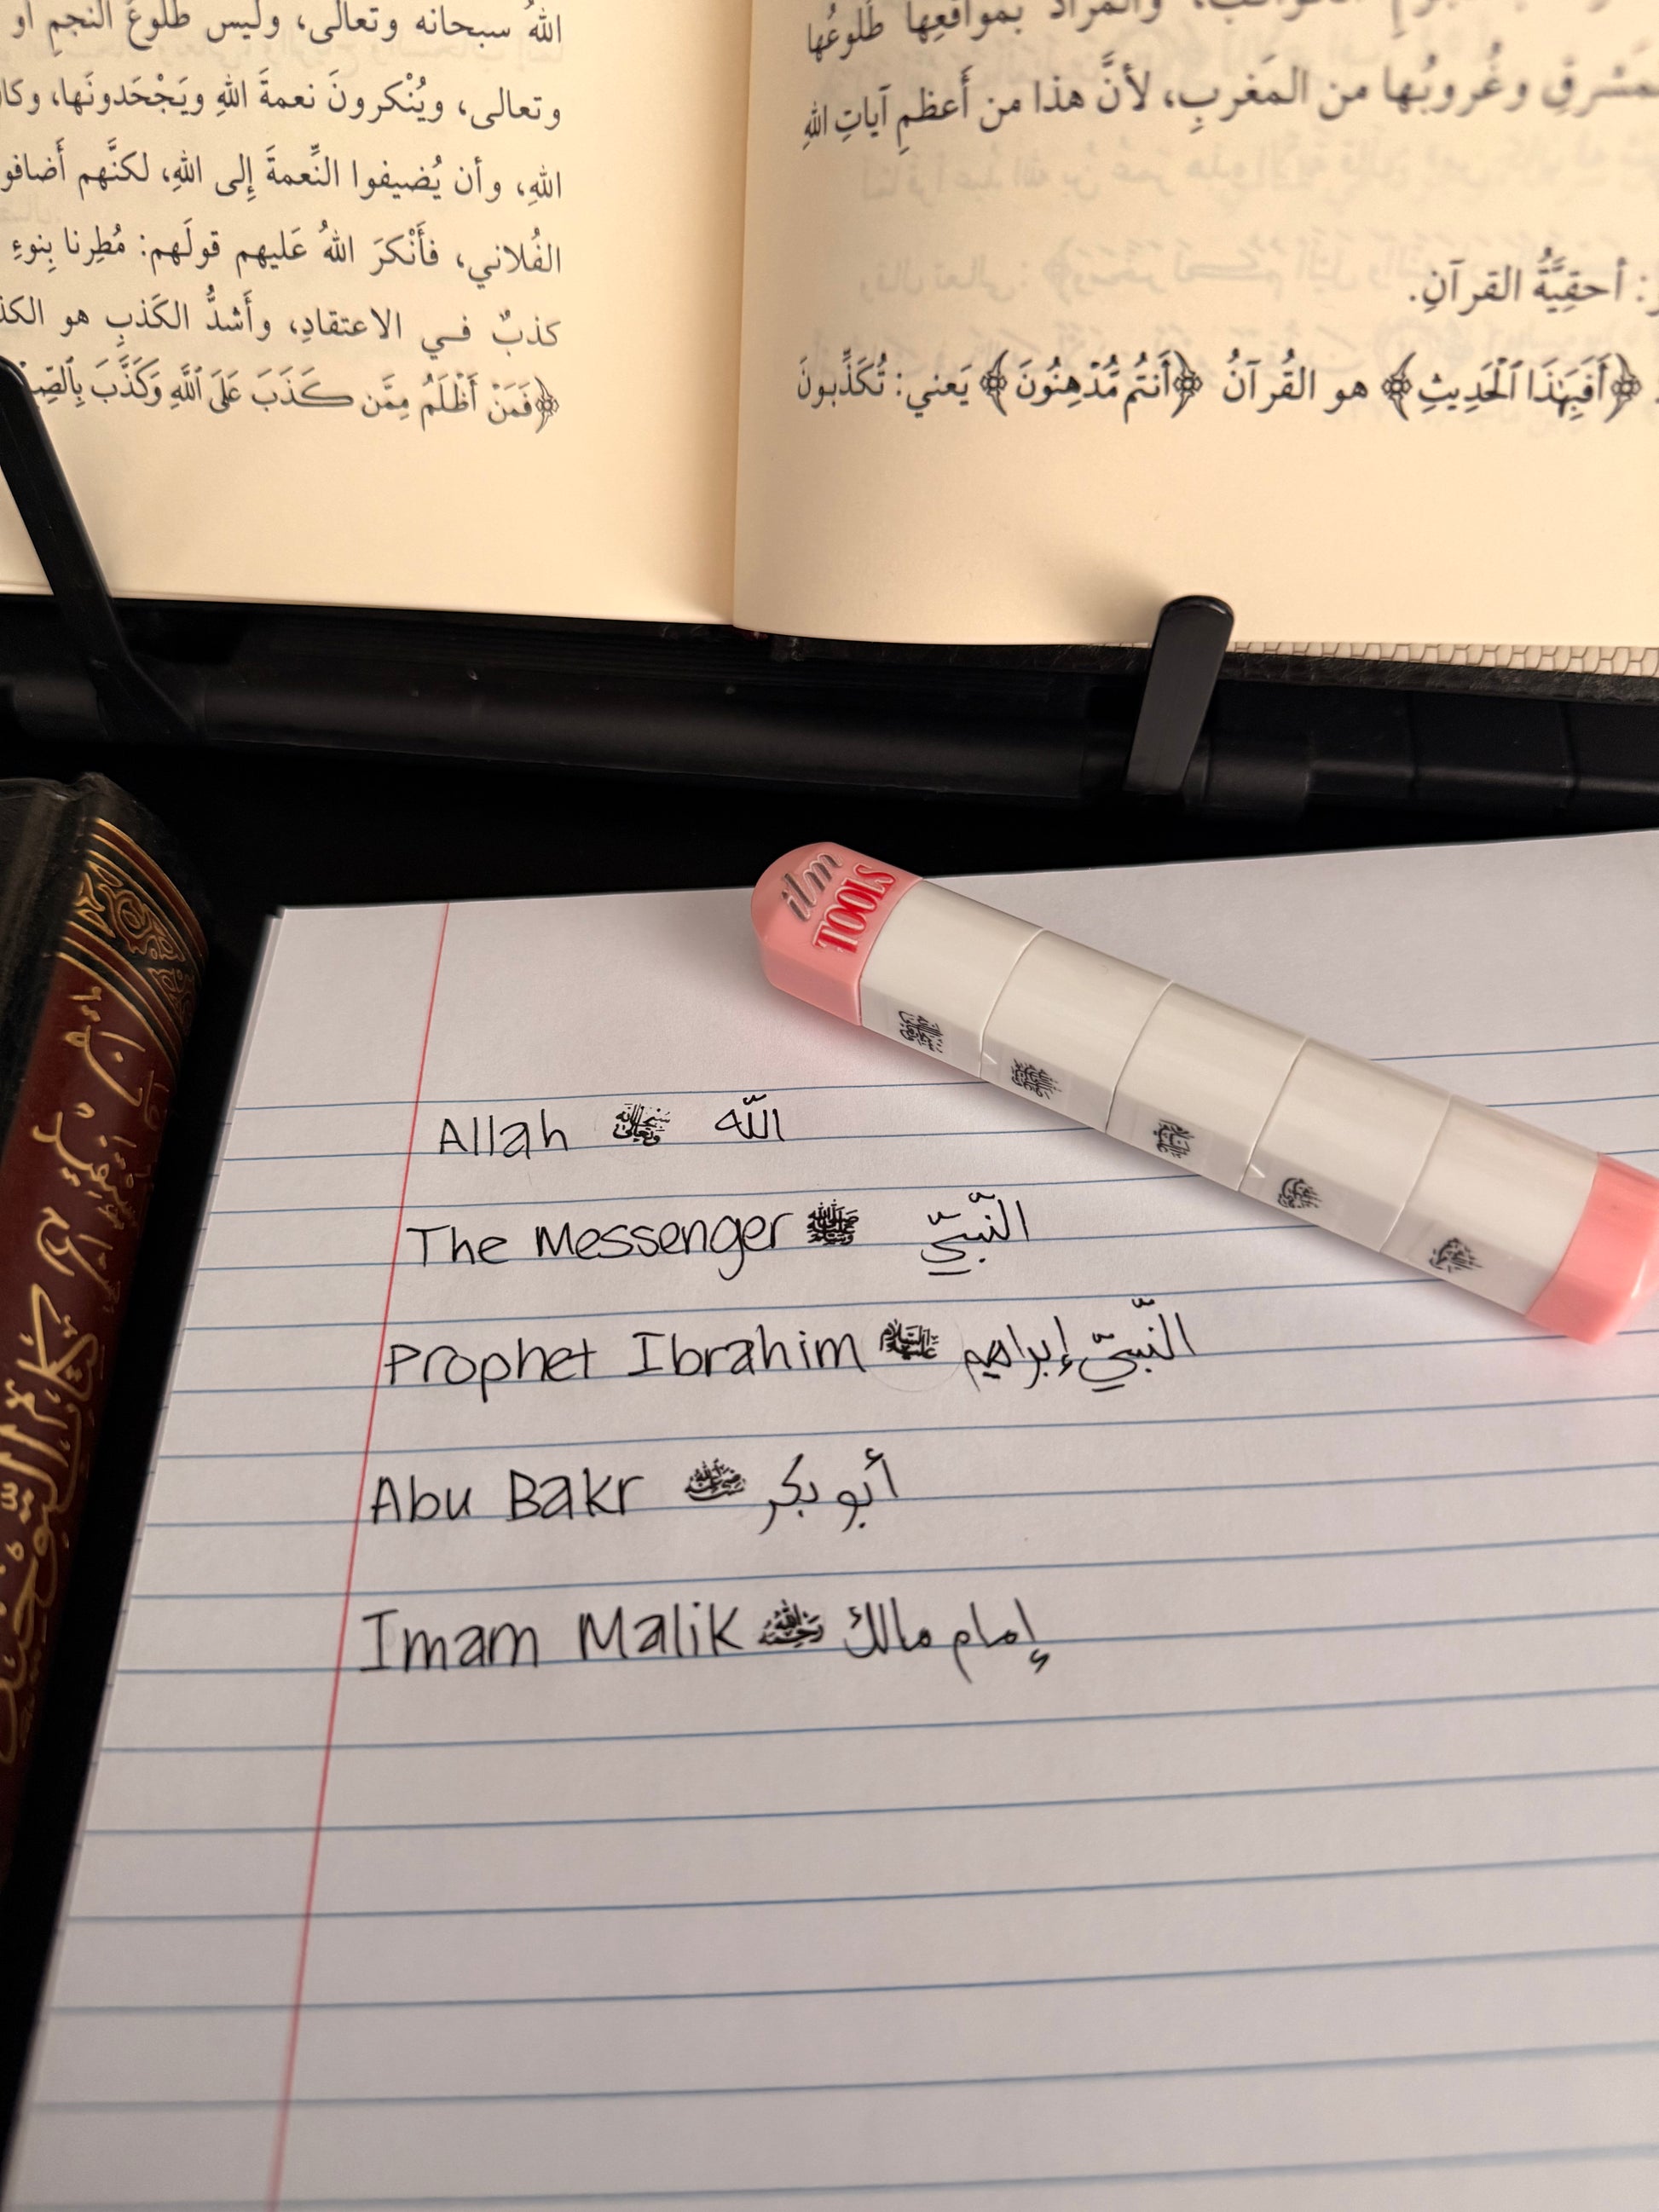 الله سبحانه وتعالى، وليس طلوعَ النجمِ أو
وتعالى، ويُنْكرونَ نعمةَ اللهِ ويَجْحَدونَها، وكان
اللهِ، وأن يُضيفوا النِّعمةَ إِلى اللهِ، لكنَّهم أَضافو
الفُلاني، فأَنْكرَ اللهُ عَليهم قولَهم: مُطِرنا بِنوءِ
كذبٌ في الاعتقادِ، وأَشدُّ الكَذبِ هو
﴿فَمَنْ أَظْلَمُ مِمَّن كَذَبَ عَلَى ٱللَّهِ وَكَذَّبَ
والمرادُ بمواقعِها طُلوعُها
وغُروبُها من المَغربِ، لأنَّ هذا من أَعظمِ آياتِ اللهِ
: أحقِيَّةُ القرآنِ.
﴿أَفَبِهَٰذَا ٱلْحَدِيثِ﴾ هو القُرآنُ ﴿أَنتُم مُّدْهِنُونَ﴾ يَعني: تُكَذِّبونَ
ilm
TOOLS
Allah سبحانه وتعالى اللّٰه
The Messenger ﷺ النّبيّ
Prophet Ibrahim عليه السلام النّبيّ إبراهيم
Abu Bakr رضي الله عنه أبو بكر
Imam Malik رحمه الله إمام مالك